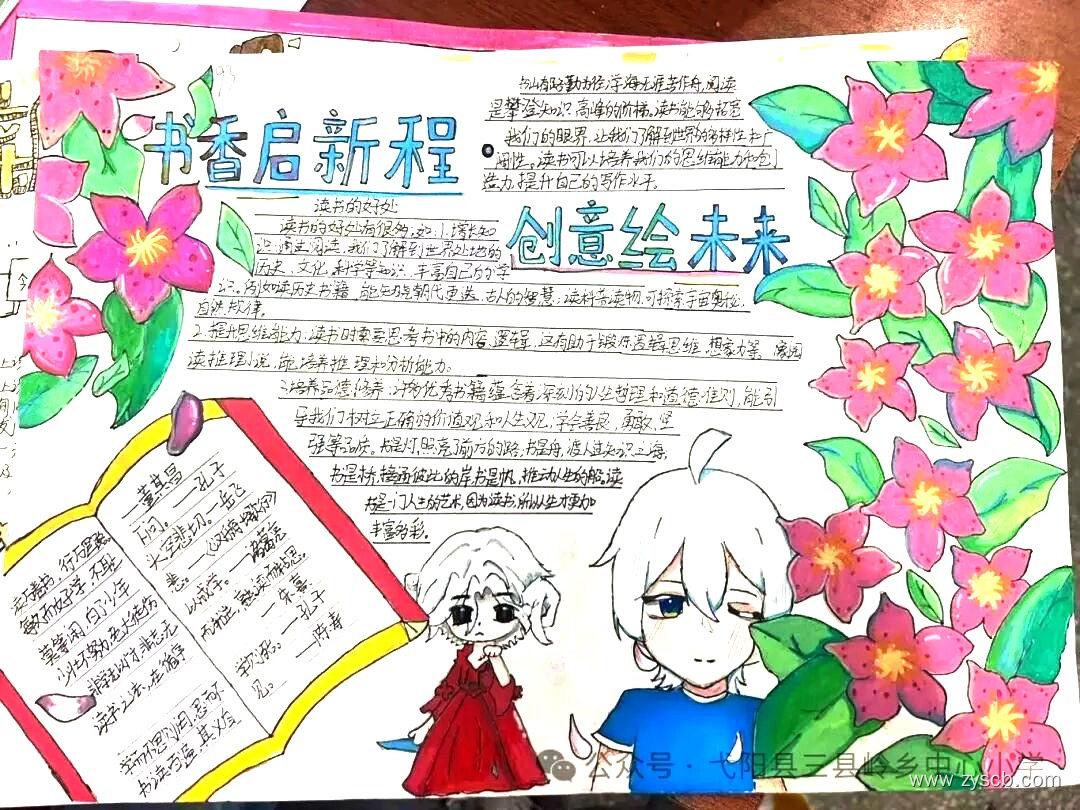 书香启新程
书山有路勤为径,学海无涯苦作舟,阅读
是攀登知识高峰的阶梯。读书能够拓宽
我们的眼界,让我们了解到世界的多样性和广
阔性。读书可以培养我们的思维能力和创
造力,提升自己的写作水平。
创意绘未来
读书的好处
读书的好处有很多,如:1.增长知
识:通过阅读,我们了解到世界处地的
历史、文化、科学等知识,丰富自己的学
识。例如读历史书籍,能知与朝代更迭、古人的智慧;读科普读物,可探索宇宙奥秘、
自然规律。
2.提升思维能力:读书时需要思考书中的内容、逻辑,这有助于锻炼逻辑思维、想象力等。
读推理小说,能培养推理和分析能力。
3.培养品德修养:许多优秀书籍蕴含着深刻的人生哲理和道德准则,能引
导我们树立正确的价值观和人生观,学会善良、勇敢、坚
强等品质。书是灯,照亮了前方的路,书是舟,渡人过知识之海,
书是桥,接通彼此的岸,书是帆,推动人生的船。读
书是一门人生的艺术,因为读书,所以人生才更加
丰富多彩。
读万卷书,行万里路
——董其昌
敏而好学,不耻
下问。——孔子
莫等闲,白了少年
头,空悲切。——岳飞
少壮不努力,老大徒伤
悲。——《汉乐府·长歌行》
非学无以广才,非志无
以成学。——诸葛亮
读书之法,在循序
而渐进,熟读而精思
——朱熹
学而不思则罔,思而不
学则殆。——孔子
书读百遍,其义自
见。——陈寿
公众号·弋阳县三县岭乡中心小学
www.zyscb.com